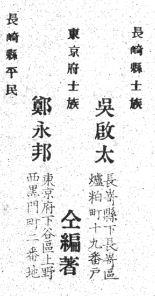 長崎縣士族
吳啟太
長嵜縣下長嵜區
爐粕町十九番戶
東京府士族
鄭永邦
東京府下谷區上野
西黑門町二番地
仝編著
長崎縣平民